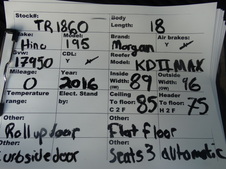 Stock#: TR1860 Body Length: 18
Make: Hino Model: 195 Brand: Morgan Air brakes: Y
17950 CDL: Y Model: KDTLMAX
Mileage: 0 Year: 2016 Inside Width: (W) 89 Outside Width: (W) 96
Temperature range: Elect. Stand by: Ceiling To floor: C 2 F 85 Header To floor: H 2 F 75
Roll up door Flat floor
Curbside door Seats 3 automatic